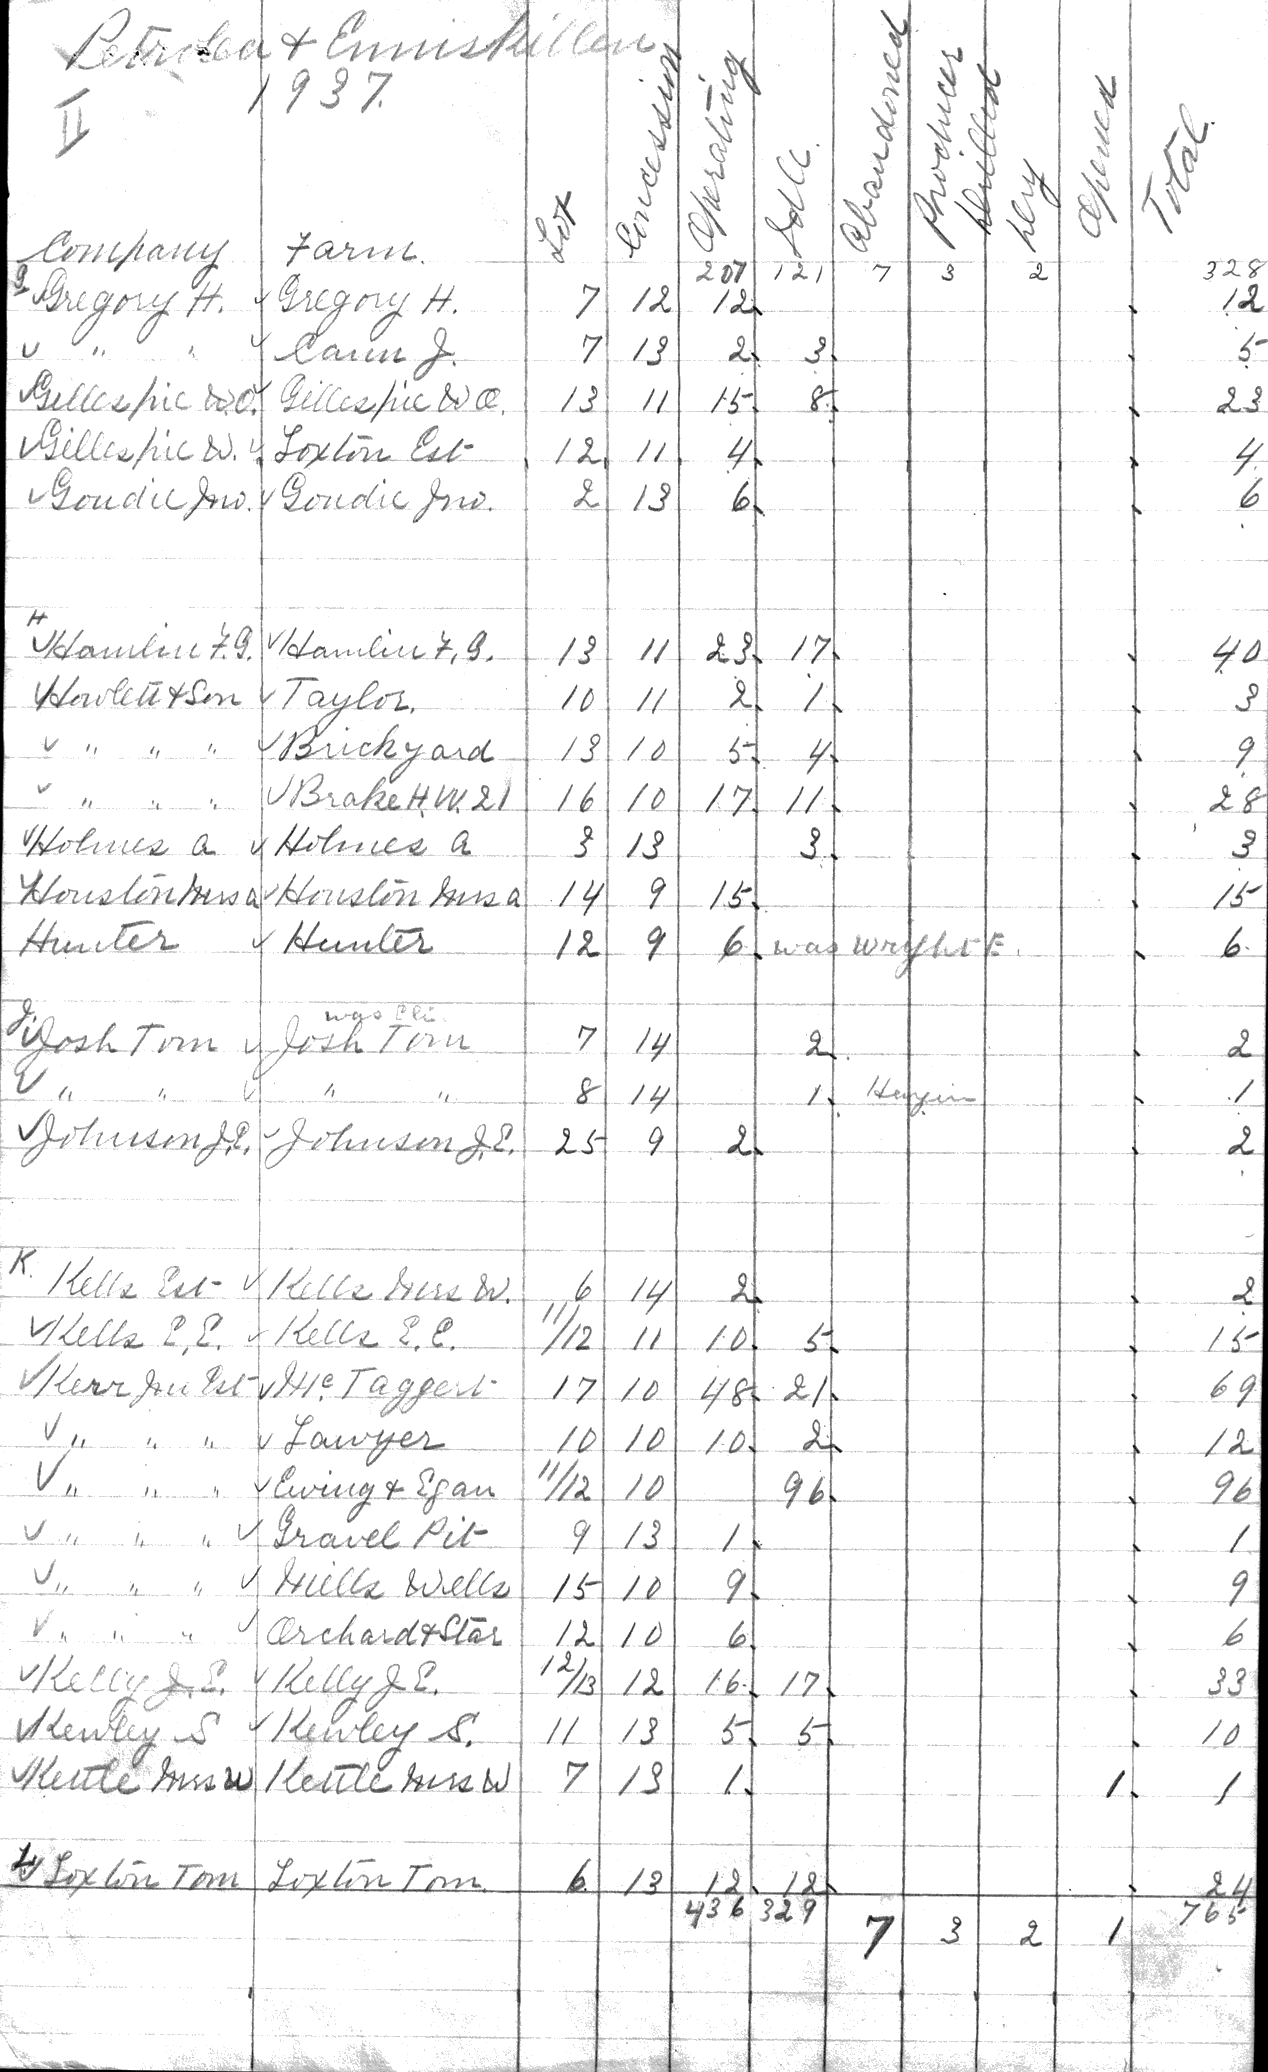 Petrolea & Enniskillen
1937.
II
Company Farm. Lot Concession Operating Idle. Abandoned Producer Drilled Dry Opened Total.
207 121 7 3 2 328
G
Gregory H. Gregory H. 7 12 12 12
" " Cann J. 7 13 2 3 5
Gillespie W.O. Gillespie W O. 13 11 15 8 23
Gillespie W. Loxton Est 12 11 4 4
Goudie Jno. Goudie Jno. 2 13 6 6
H
Hamlin F.G. Hamlin F.G. 13 11 23 17 40
Howlett & Son Taylor. 10 11 2 1 3
" " " Brickyard 13 10 5 4 9
" " " Brake H.W. 21 16 10 17 11 28
Holmes A Holmes A 3 13 3 3
Houston Mrs A Houston Mrs A 14 9 15 15
Hunter Hunter 12 9 6 was Wright E. 6
J.
was Eli
Josh Tom Josh Tom 7 14 2 2
" " " " 8 14 1 1
Johnson J.E. Johnson J.E. 25 9 2 2
K.
Kells Est Kells Mrs W. 6 14 2 2
Kells E.E. Kells E.E. 11/12 11 10 5 15
Kerr Jno Est Mc Taggert 17 10 48 21 69
" " " Lawyer 10 10 10 2 12
" " " Ewing & Egan 11/12 10 96 96
" " " Gravel Pit 9 13 1 1
" " " Mills Wells 15 10 9 9
" " " Orchard & Star 12 10 6 6
Kelly J.E. Kelly J.E. 12/13 12 16 17 33
Kewley S Kewley S. 11 13 5 5 10
Kettle Mrs W Kettle Mrs W 7 13 1 1 1
L
Loxton Tom Loxton Tom. 6 13 12 12 24
436 329 7 3 2 1 765